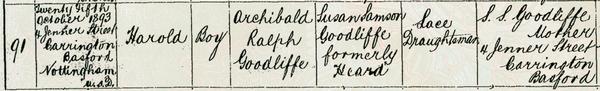 91
Twenty Fifth
October 1893
4 Jenner Street
Carrington
Basford
Nottingham
U.S.D.
Harold
Boy
Archibald
Ralph
Goodliffe
Susan Samson
Goodliffe
formerly
Heard
Lace
Draughtsman
S. S. Goodliffe
Mother
4 Jenner Street
Carrington
Basford